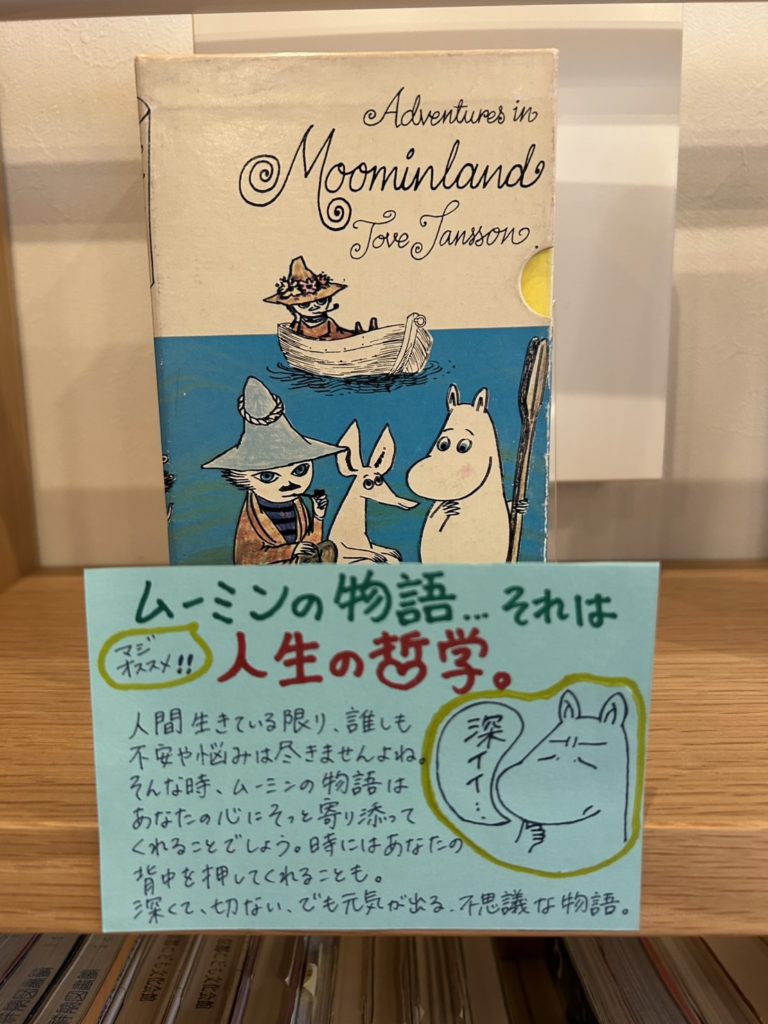 Adventures in
Moominland
Tove Jansson
ムーミンの物語...それは
マジ
オススメ!!
人生の哲学。
人間生きている限り、誰しも
不安や悩みは尽きませんよね。
そんな時、ムーミンの物語は
あなたの心にそっと寄り添って
くれることでしょう。時にはあなたの
背中を押してくれることも。
深くて、切ない、でも元気が出る、不思議な物語。
深イイ...